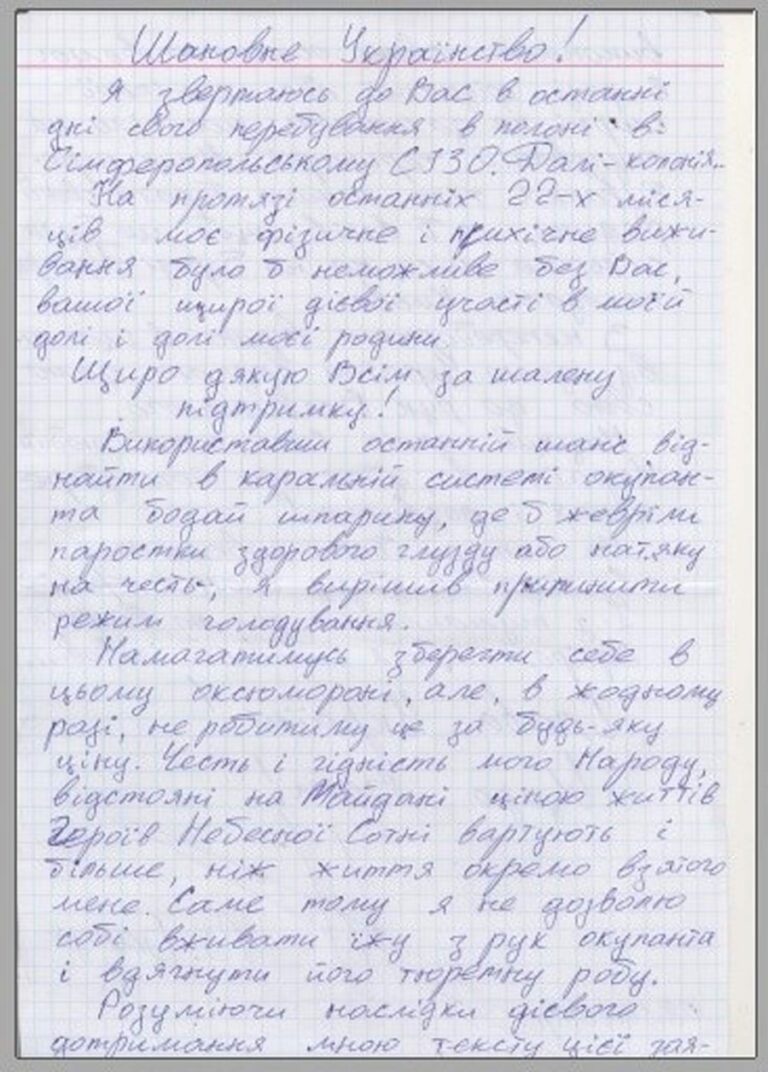 Шановне Українство!
Я звертаюсь до Вас в останні
дні свого перебування в полоні в
Сімферопольському СІЗО. Далі - колонія..
На протязі останніх 22-х міся-
ців моє фізичне і психічне вижи-
вання було б неможливе без Вас,
вашої щирої дієвої участі в моїй
долі і долі моєї родини.
Щиро дякую Всім за шалену
підтримку!
Використавши останній шанс від-
найти в каральній системі окупан-
та бодай шпарину, де б жевріли
паростки здорового глузду або натяку
на честь, я вирішив припинити
режим голодування.
Намагатимусь зберегти себе в
цьому оксюмороні, але, в жодному
разі, не робитиму це за будь-яку
ціну. Честь і гідність мого Народу,
відстояні на Майдані ціною життів
Героїв Небесної Сотні вартують і
більше, ніж життя окремо взятого
мене. Саме тому я не дозволю
собі вживати їжу з рук окупанта
і вдягнути його тюремну робу.
Розуміючи наслідки дієвого
дотримання мною тексту цієї зая-